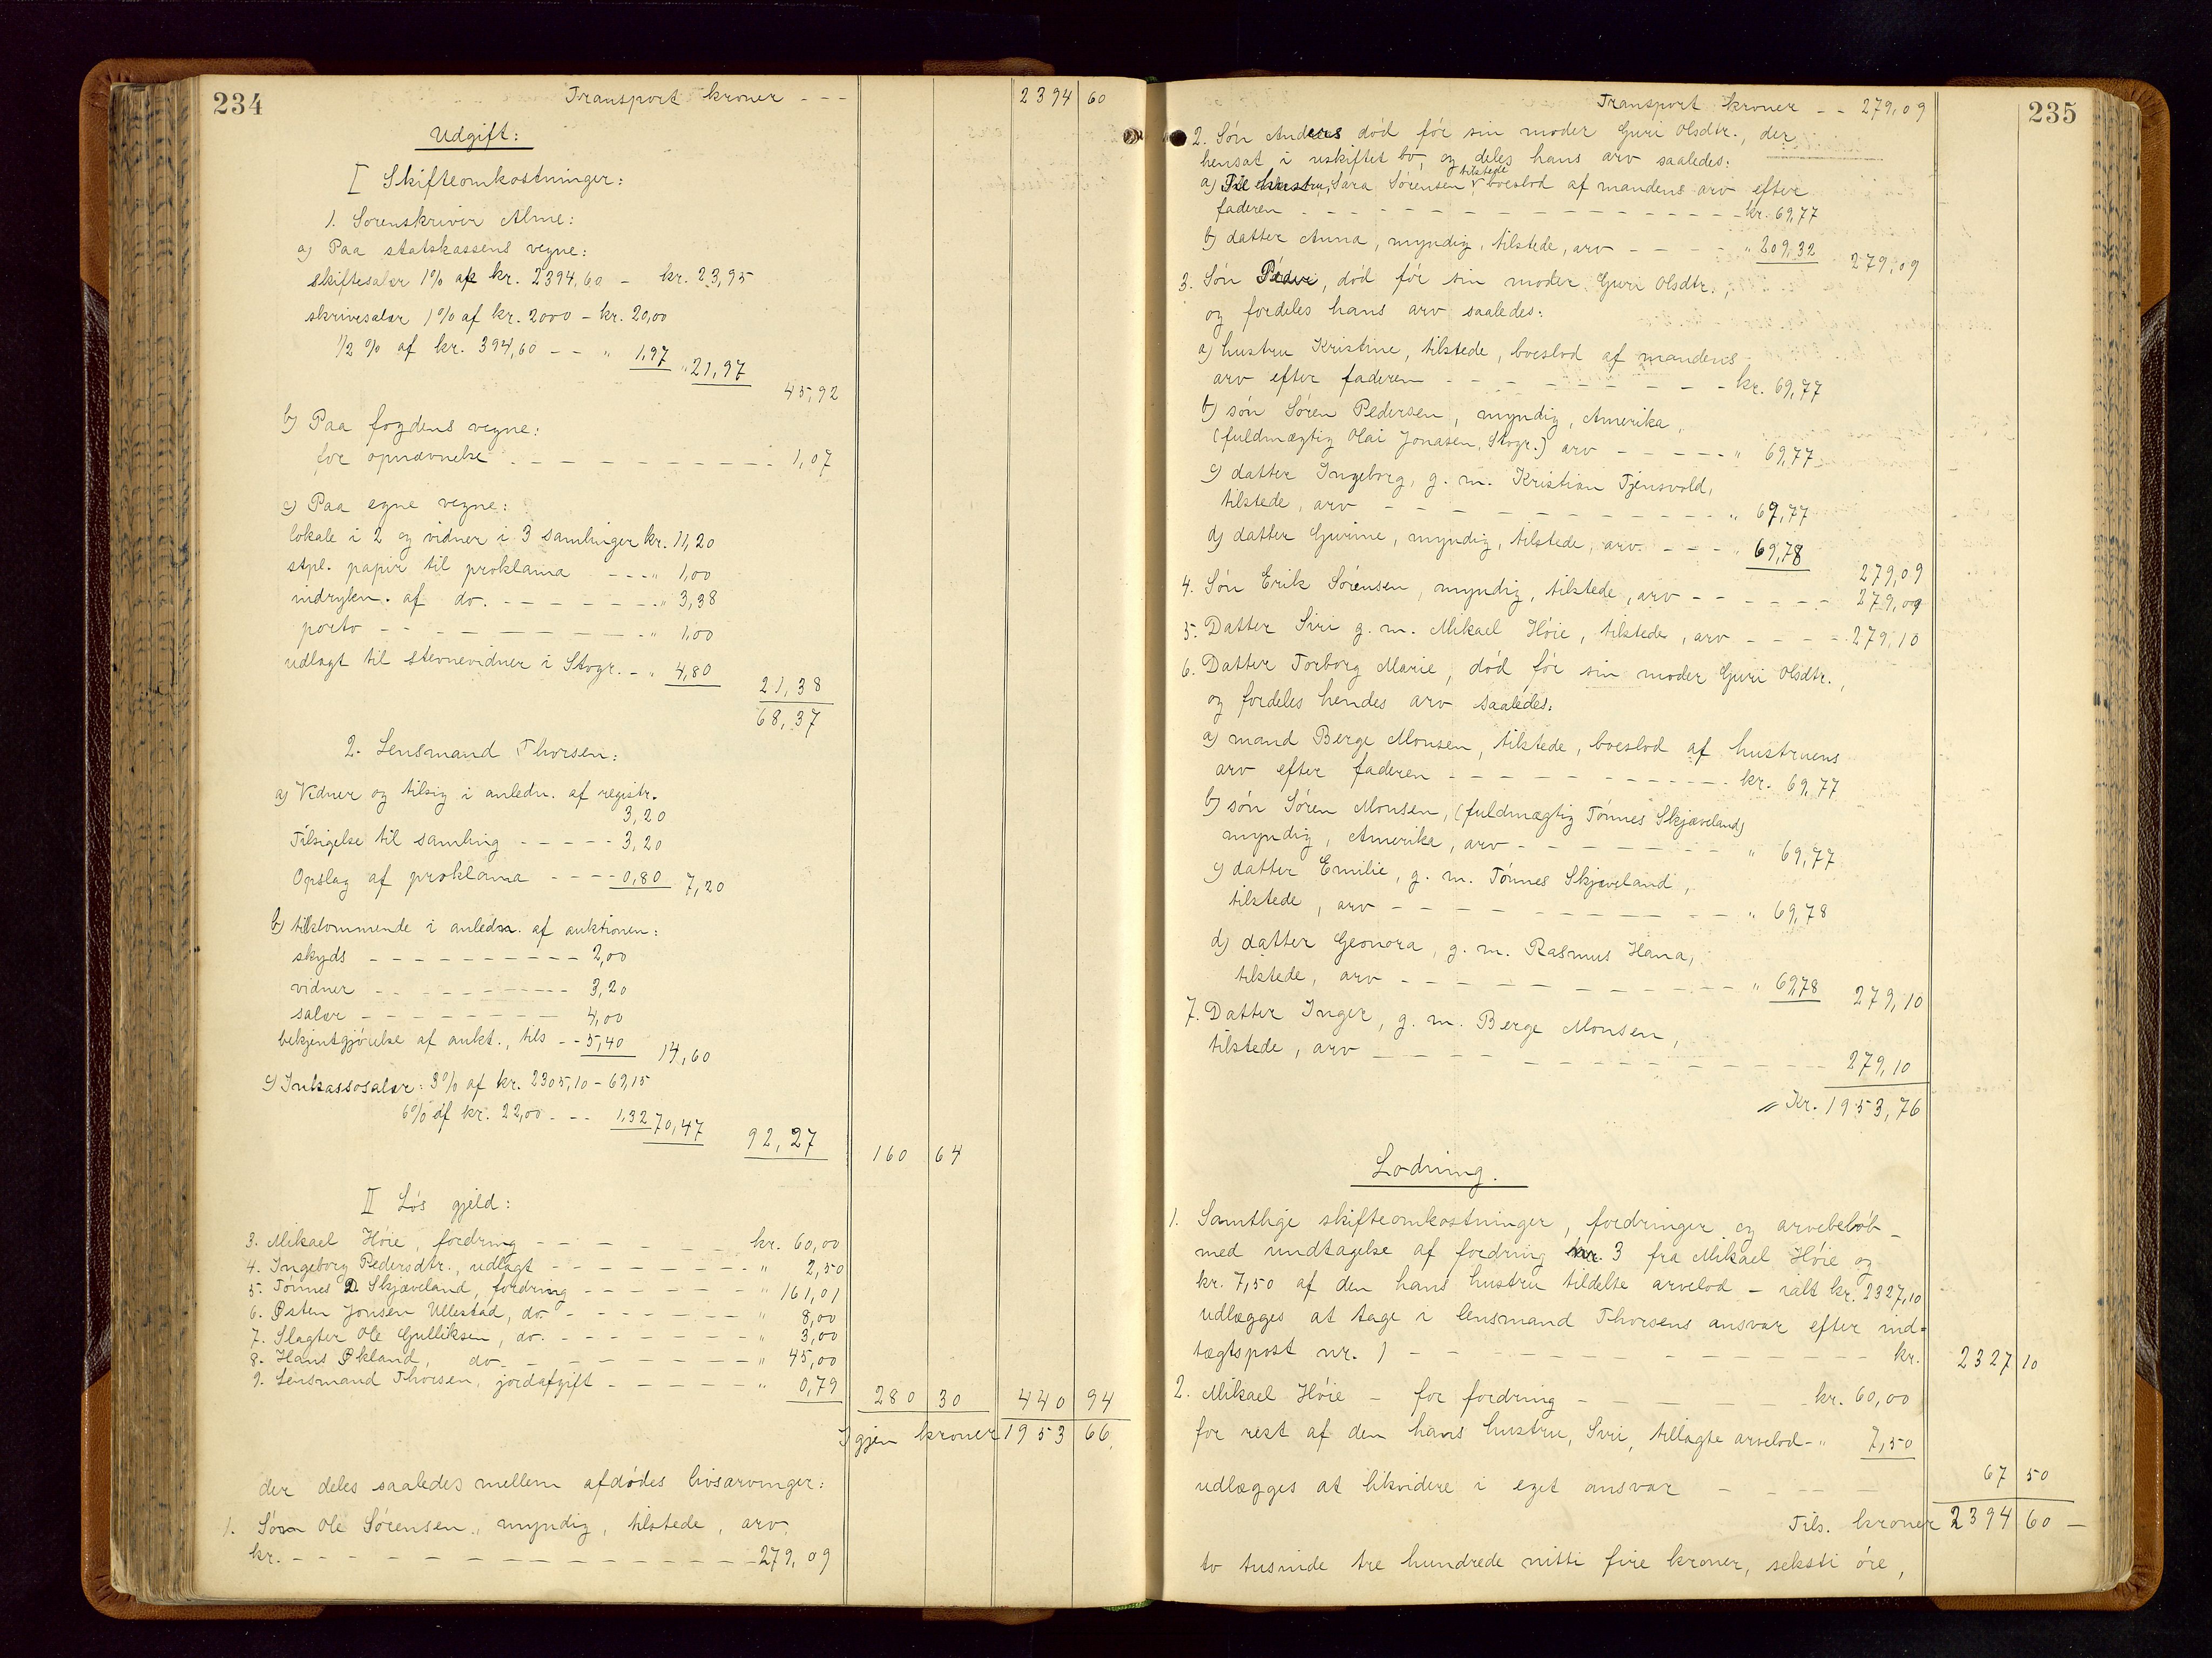 234
Transport kroner --- 2394 60
Udgift:
I Skifteomkostninger:
1. Sorenskriver Alme:
a) Paa statskassens vegne:
skiftesalær 1% af kr. 2394,60 – kr. 23,95
skrivesalær 1% af kr. 2000 – kr. 20,00
1/2 % af kr. 394,60 – – " 1,97 " 21,97
45,92
b) Paa fogdens vegne:
for opnævnelse – – – – 1,07
c) Paa egne vegne:
lokale i 2 og vidner i 3 samlinger kr. 11,20
stpl. papir til proklama – – – " 1,00
indrykn. af do. – – – – " 3,38
porto – – – – " 1,00
udlagt til stevnevidner i Stvgr. – " 4,80
21,38
68,37
2. Lensmand Thorsen:
a) Vidner og tilsig i anledn. af registr.
3,20
Tilsigelse til samling – – – – – 3,20
Opslag af proklama – – – – 0,80 7,20
b) tilkommende i anledn. af auktionen:
skyds – – – – 2,00
vidner – – – – 3,20
salær – – – – 4,00
bekjentgjörelse af aukt., tils – – 5,40 14,60
c) Inkassosalær: 3% af kr. 2305,10 – 69,15
6% af kr. 22,00 – – – 1,32 70,47
92,27 160 64
II Lös gjeld:
3. Mikael Höie, fordring – – – – kr. 60,00
4. Ingeborg Pedersdtr., udlagt – – – – " 2,50
5. Tönnes D. Skjæveland, fordring – – – – " 161,01
6. Østen Jonsen Ullestad, do – – – – " 8,00
7. Slagter Ole Gulliksen, do. – – – – " 3,00
8. Hans Økland, do – – – – " 45,00
9. Lensmand Thorsen, jordafgift – – – – " 0,79
280 30 440 94
Igjen kroner 1953 66
der deles saaledes mellem afdödes livsarvinger:
1. Sön Ole Sörensen, myndig, tilstede, arv
kr. – – – – 279,09
235
Transport kroner – – 279,09
2. Sön Anders död för sin moder Guri Olsdtr., der
hensat i uskiftet bo, og deles hans arv saaledes:
a) Til hustru, Sara Sörensen tilstede boeslod af mandens arv efter
faderen – – – – kr. 69,77
b) datter Anna, myndig, tilstede, arv – – – – " 209,32 279,09
3. Sön Peder, död för sin moder Guri Olsdtr.,
og fordeles hans arv saaledes:
a) hustru Kristine, tilstede, boeslod af mandens
arv efter faderen – – – – kr. 69,77
b) sön Sören Pedersen, myndig, Amerika,
(fuldmægtig Olai Jonasen, Stvgr.) arv – – – – " 69,77
c) datter Ingeborg, g. m. Kristian Tjensvold,
tilstede, arv – – – – " 69,77
d) datter Gurine, myndig, tilstede, arv – – – " 69,78
279,09
4. Sön Erik Sörensen, myndig, tilstede, arv – – – – 279,09
5. Datter Siri g. m. Mikael Höie, tilstede, arv – – – – 279,10
6. Datter Torborg Marie, död för sin moder Guri Olsdtr.,
og fordeles hendes arv saaledes:
a) mand Berge Monsen, tilstede, boeslod af hustruens
arv efter faderen – – – – kr. 69,77
b) sön Sören Monsen, (fuldmægtig Tönnes Skjæveland)
myndig, Amerika, arv – – – – " 69,77
c) datter Emilie, g. m. Tönnes Skjæveland,
tilstede, arv – – – – " 69,78
d) datter Geonora, g. m. Rasmus Hana,
tilstede, arv – – – – " 69,78 279,10
7. Datter Inger, g. m. Berge Monsen,
tilstede, arv – – – – 279,10
Kr. 1953,76
Lodning.
1. Samtlige skifteomkostninger, fordringer og arvebelöb –
med undtagelse af fordring nr. 3 fra Mikael Höie og
kr. 7,50 af den hans hustru tildelte arvelod – ialt kr. 2327,10
udlægges at tage i lensmand Thorsens ansvar efter ind-
tægtspost nr. 1 – – – – kr. 2327 10
2. Mikael Höie – for fordring – – – – kr. 60,00
for rest af den hans hustru, Siri, tillagte arvelod – " 7,50
udlægges at likvidere i eget ansvar – – – – 67 50
Tils. kroner 2394 60 –
to tusinde tre hundrede nitti fire kroner, seksti öre,